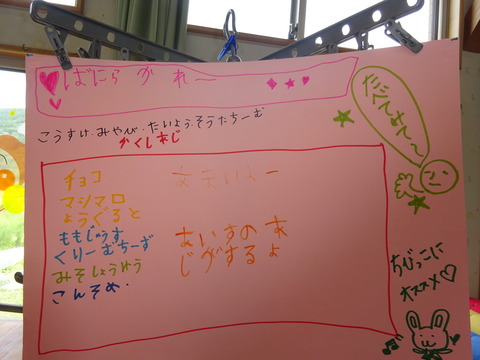 ばにら かれ〜
たべてみて〜
こうすけ・みやび・たいよう・そうたちーむ
かくしあじ
チョコ
マシマロ
ようぐると
ももじゅうす
くりーむちーず
みそしょうゆう
こんそめ・
あいすのあ
じがするよ
ちびっこに
オススメ♡